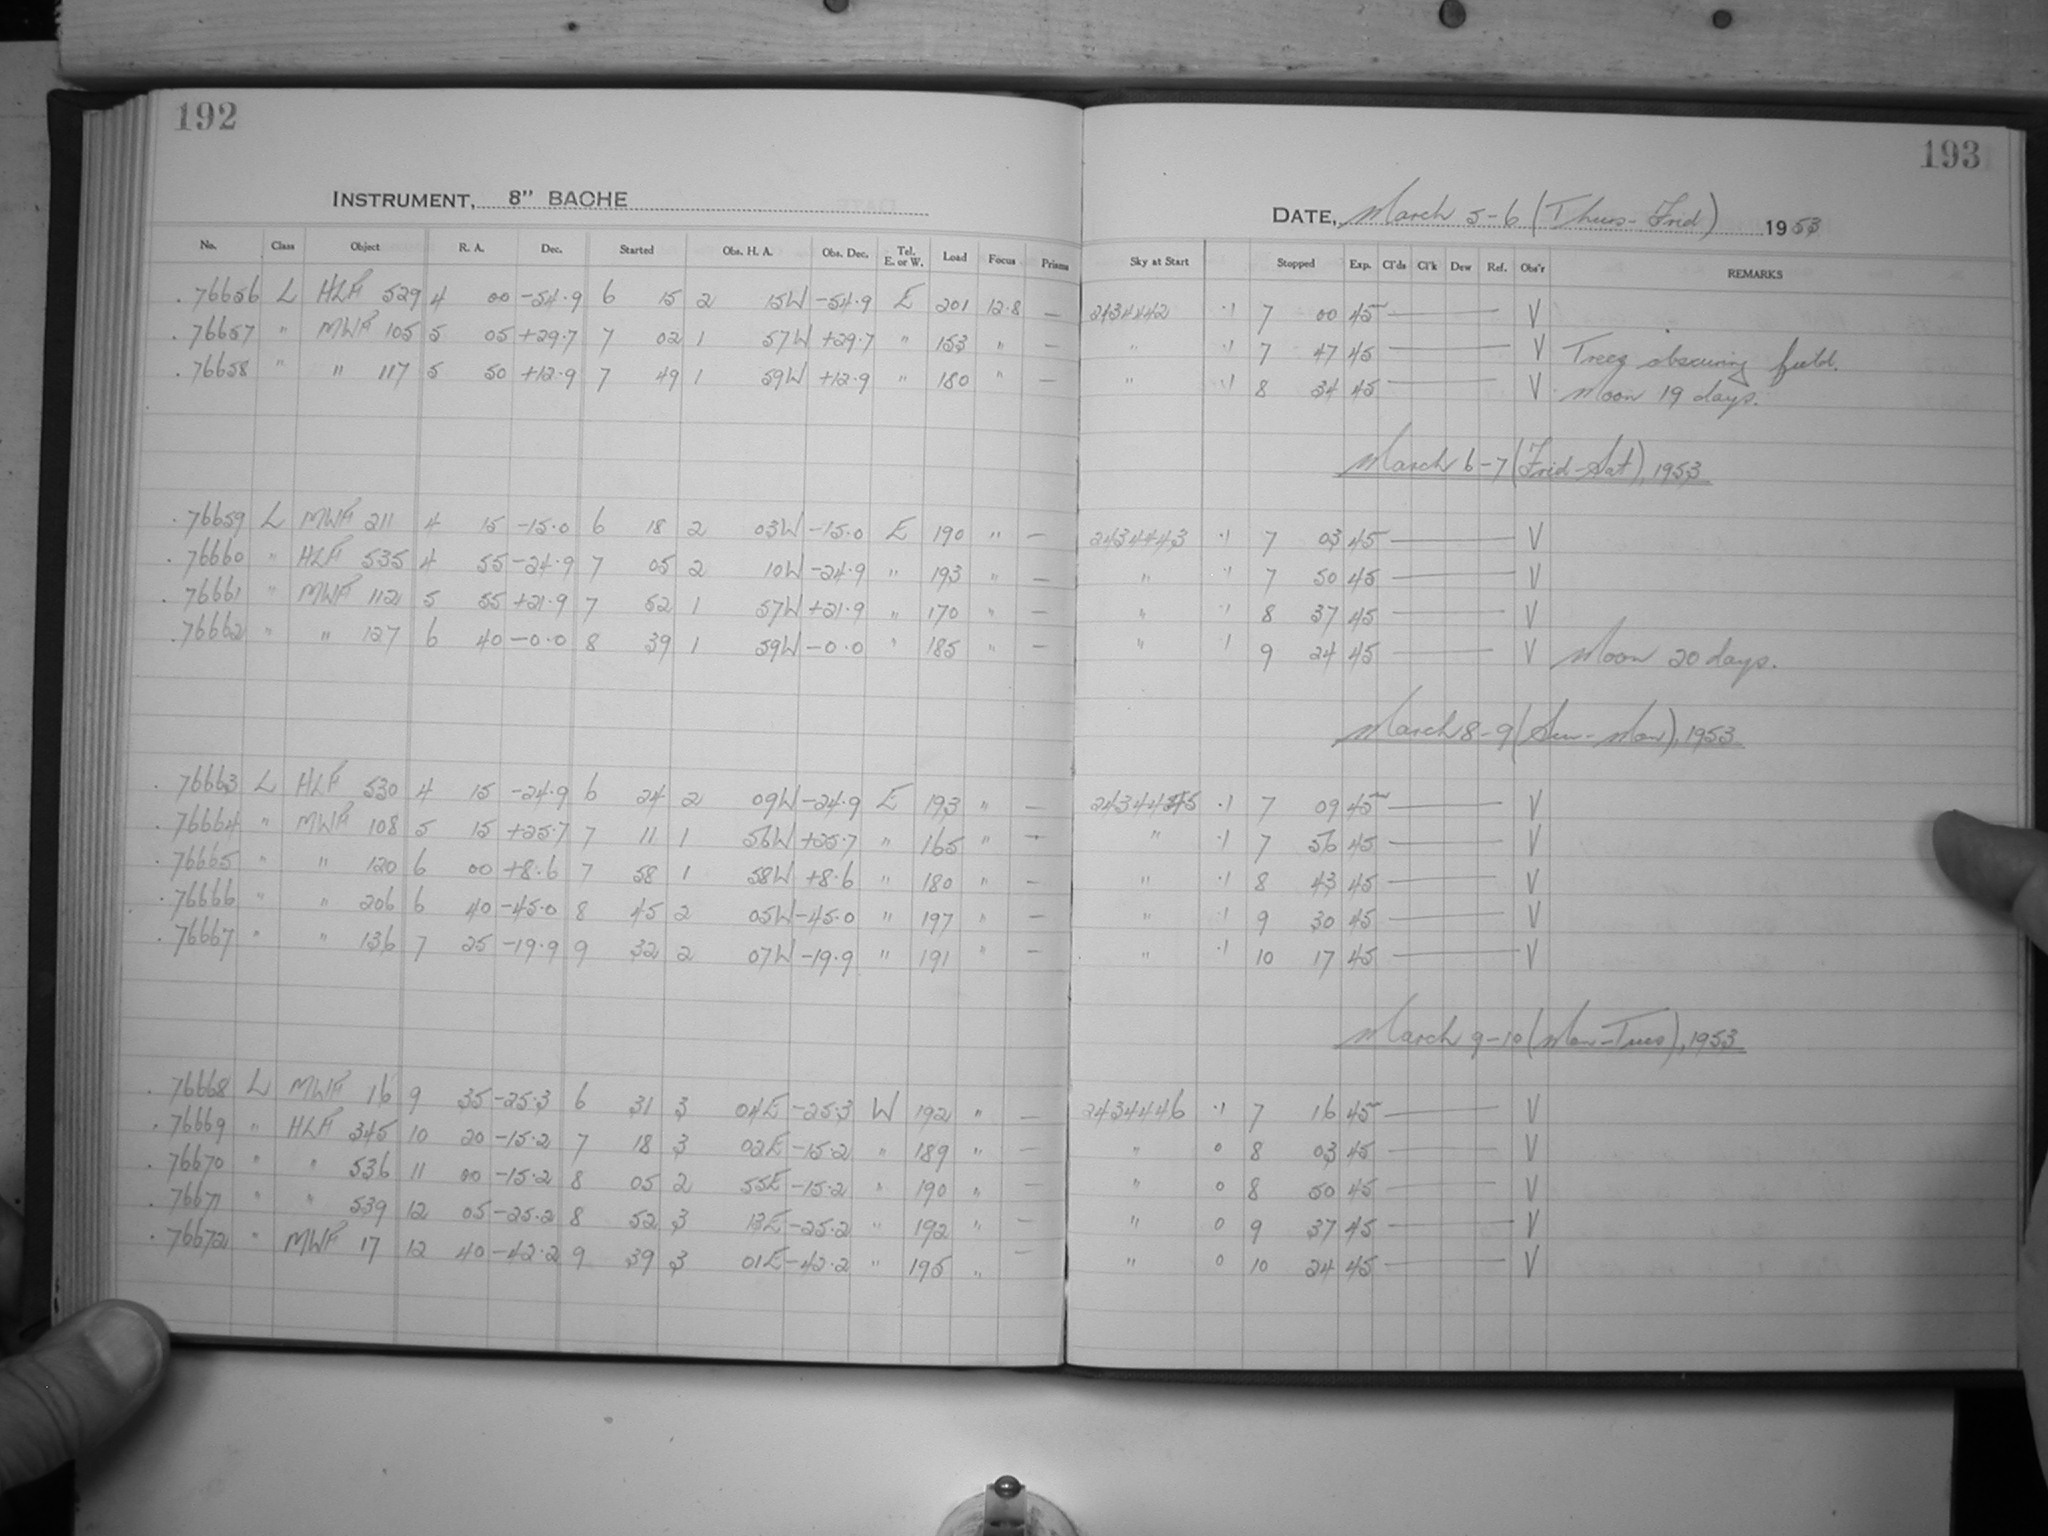 192
193
INSTRUMENT, 8" BACHE
DATE, March 5-6 (Thurs-Frid) 1953
No. Class Object R. A. Dec. Started Obs. H. A. Obs. Dec. Tel. E. or W. Load Focus Prisms Sky at Start Stopped Exp. Cl'ds Cl'k Dew Ref. Obs'r REMARKS
.76656 L HLF 529 4 00 -54.9 6 15 2 15W -54.9 E 201 12.8 — 2434442 .1 7 00 45 — V
.76657 " MWF 105 5 05 +29.7 7 02 1 57W +29.7 " 153 " — " .1 7 47 45 — V Trees obscuring field.
.76658 " " 117 5 50 +12.9 7 49 1 59W +12.9 " 180 " — " .1 8 34 45 — V Moon 19 days.
March 6-7 (Frid-Sat), 1953
.76659 L MWF 211 4 15 -15.0 6 18 2 03W -15.0 E 190 " — 2434443 .1 7 03 45 — V
.76660 " HLF 535 4 55 -24.9 7 05 2 10W -24.9 " 193 " — " .1 7 50 45 — V
.76661 " MWF 1121 5 55 +21.9 7 52 1 57W +21.9 " 170 " — " .1 8 37 45 — V
.76662 " " 127 6 40 -0.0 8 39 1 59W -0.0 " 185 " — " .1 9 24 45 — V Moon 20 days.
March 8-9 (Sun-Mon), 1953
.76663 L HLF 530 4 15 -24.9 6 24 2 09W -24.9 E 193 " — 2434445 .1 7 09 45 — V
.76664 " MWF 108 5 15 +25.7 7 11 1 56W +25.7 " 165 " — " .1 7 56 45 — V
.76665 " " 120 6 00 +8.6 7 58 1 58W +8.6 " 180 " — " .1 8 43 45 — V
.76666 " " 206 6 40 -45.0 8 45 2 05W -45.0 " 197 " — " .1 9 30 45 — V
.76667 " " 136 7 25 -19.9 9 32 2 07W -19.9 " 191 " — " .1 10 17 45 — V
March 9-10 (Mon-Tues), 1953
.76668 L MWF 16 9 35 -25.3 6 31 3 04E -25.3 W 192 " — 2434446 .1 7 16 45 — V
.76669 " HLF 345 10 20 -15.2 7 18 3 02E -15.2 " 189 " — " 0 8 03 45 — V
.76670 " " 536 11 00 -15.2 8 05 2 55E -15.2 " 190 " — " 0 8 50 45 — V
.76671 " " 539 12 05 -25.2 8 52 3 13E -25.2 " 192 " — " 0 9 37 45 — V
.76672 " MWF 17 12 40 -42.2 9 39 3 01E -42.2 " 195 " — " 0 10 24 45 — V